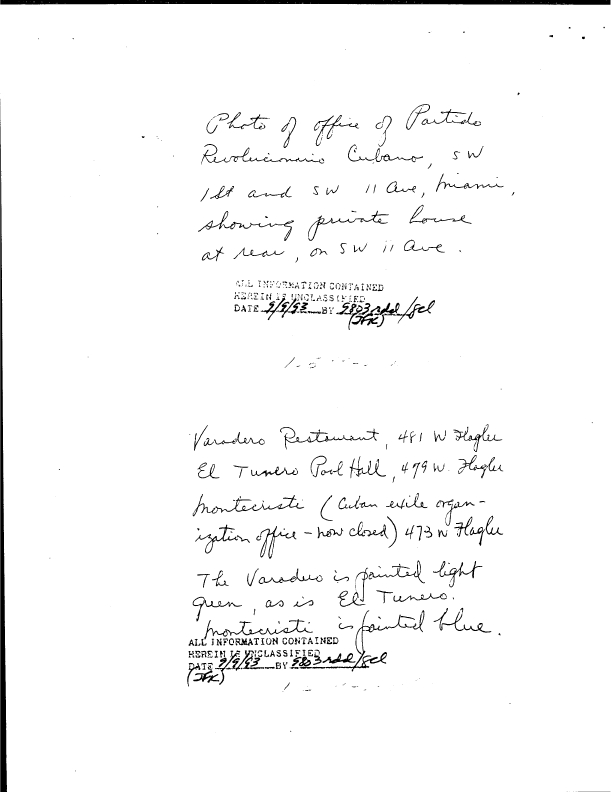 Photo of office of Partido
Revolucionario Cubano, SW
1st and SW 11 Ave, Miami,
showing private house
at rear, on SW 11 Ave.
ALL INFORMATION CONTAINED
HEREIN IS UNCLASSIFIED
DATE 9/9/93 BY 9803rdd/gcl
(JFK)
Varadero Restaurant, 481 W Flagler
El Tunero Pool Hall, 479 W. Flagler
Montecristi (Cuban exile organ-
ization office - now closed) 473 W Flagler
The Varadero is painted light
green, as is El Tunero.
Montecristi is painted blue.
ALL INFORMATION CONTAINED
HEREIN IS UNCLASSIFIED
DATE 9/9/93 BY 9803rdd/gcl
(JFK)